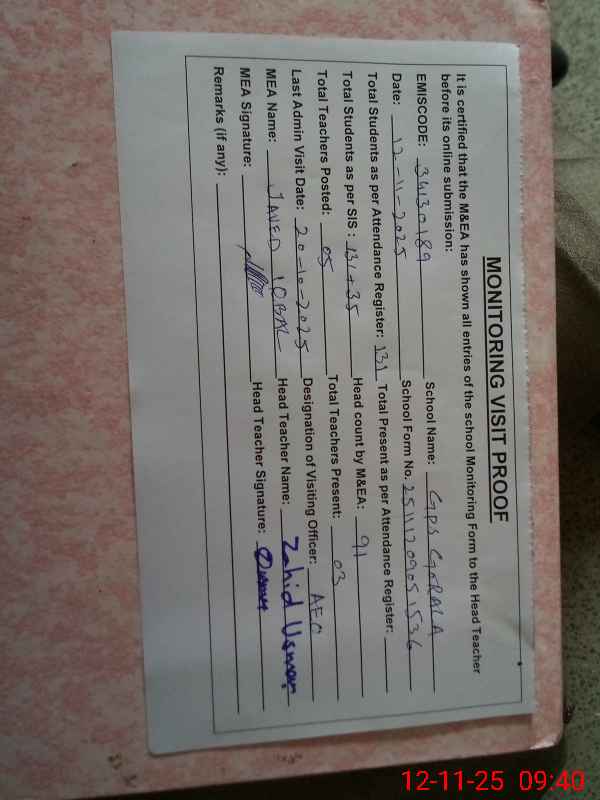 MONITORING VISIT PROOF
It is certified that the M&EA has shown all entries of the school Monitoring Form to the Head Teacher
before its online submission:
EMISCODE: 34130189 School Name: GPS GORALA
Date: 12-11-2025 School Form No. 25111209051536
Total Students as per Attendance Register: 131 Total Present as per Attendance Register:
Total Students as per SIS: 131+35 Head count by M&EA: 91
Total Teachers Posted: 05 Total Teachers Present: 03
Last Admin Visit Date: 20-10-2025 Designation of Visiting Officer: AEO
MEA Name: JAVED IQBAL Head Teacher Name: Zahid Usman
MEA Signature: Head Teacher Signature:
Remarks (if any):
12-11-25 09:40